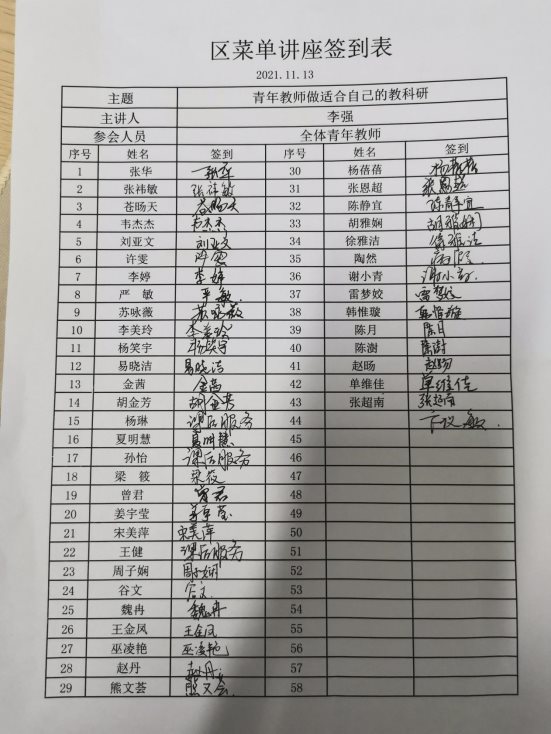 区菜单讲座签到表
2021.11.13
主题 青年教师做适合自己的教科研
主讲人 李强
参会人员 全体青年教师
序号 姓名 签到 序号 姓名 签到
1 张华 张华 30 杨蓓蓓 杨蓓蓓
2 张祎敏 张祎敏 31 张恩超 张恩超
3 苍旸天 苍旸天 32 陈静宜 陈静宜
4 韦杰杰 韦杰杰 33 胡雅娴 胡雅娴
5 刘亚文 刘亚文 34 徐雅洁 徐雅洁
6 许雯 许雯 35 陶然
7 李婷 李婷 36 谢小青 谢小青
8 严 敏 严敏 37 雷梦姣 雷梦姣
9 苏咏薇 苏咏薇 38 韩惟璇 韩惟璇
10 李美玲 李美玲 39 陈月 陈月
11 杨笑宇 杨笑宇 40 陈澍 陈澍
12 易晓洁 易晓洁 41 赵旸 赵旸
13 金茜 金茜 42 单维佳 单维佳
14 胡金芳 胡金芳 43 张超南 张超南
15 杨琳 课后服务 44
16 夏明慧 夏明慧 45
17 孙怡 课后服务 46
18 梁 筱 梁筱 47
19 曾君 曾君 48
20 姜宇莹 姜宇莹 49
21 宋美萍 宋美萍 50
22 王健 课后服务 51
23 周子娴 周子娴 52
24 谷文 谷文 53
25 魏冉 魏冉 54
26 王金凤 王金凤 55
27 巫凌艳 巫凌艳 56
28 赵丹 赵丹 57
29 熊文荟 熊文荟 58